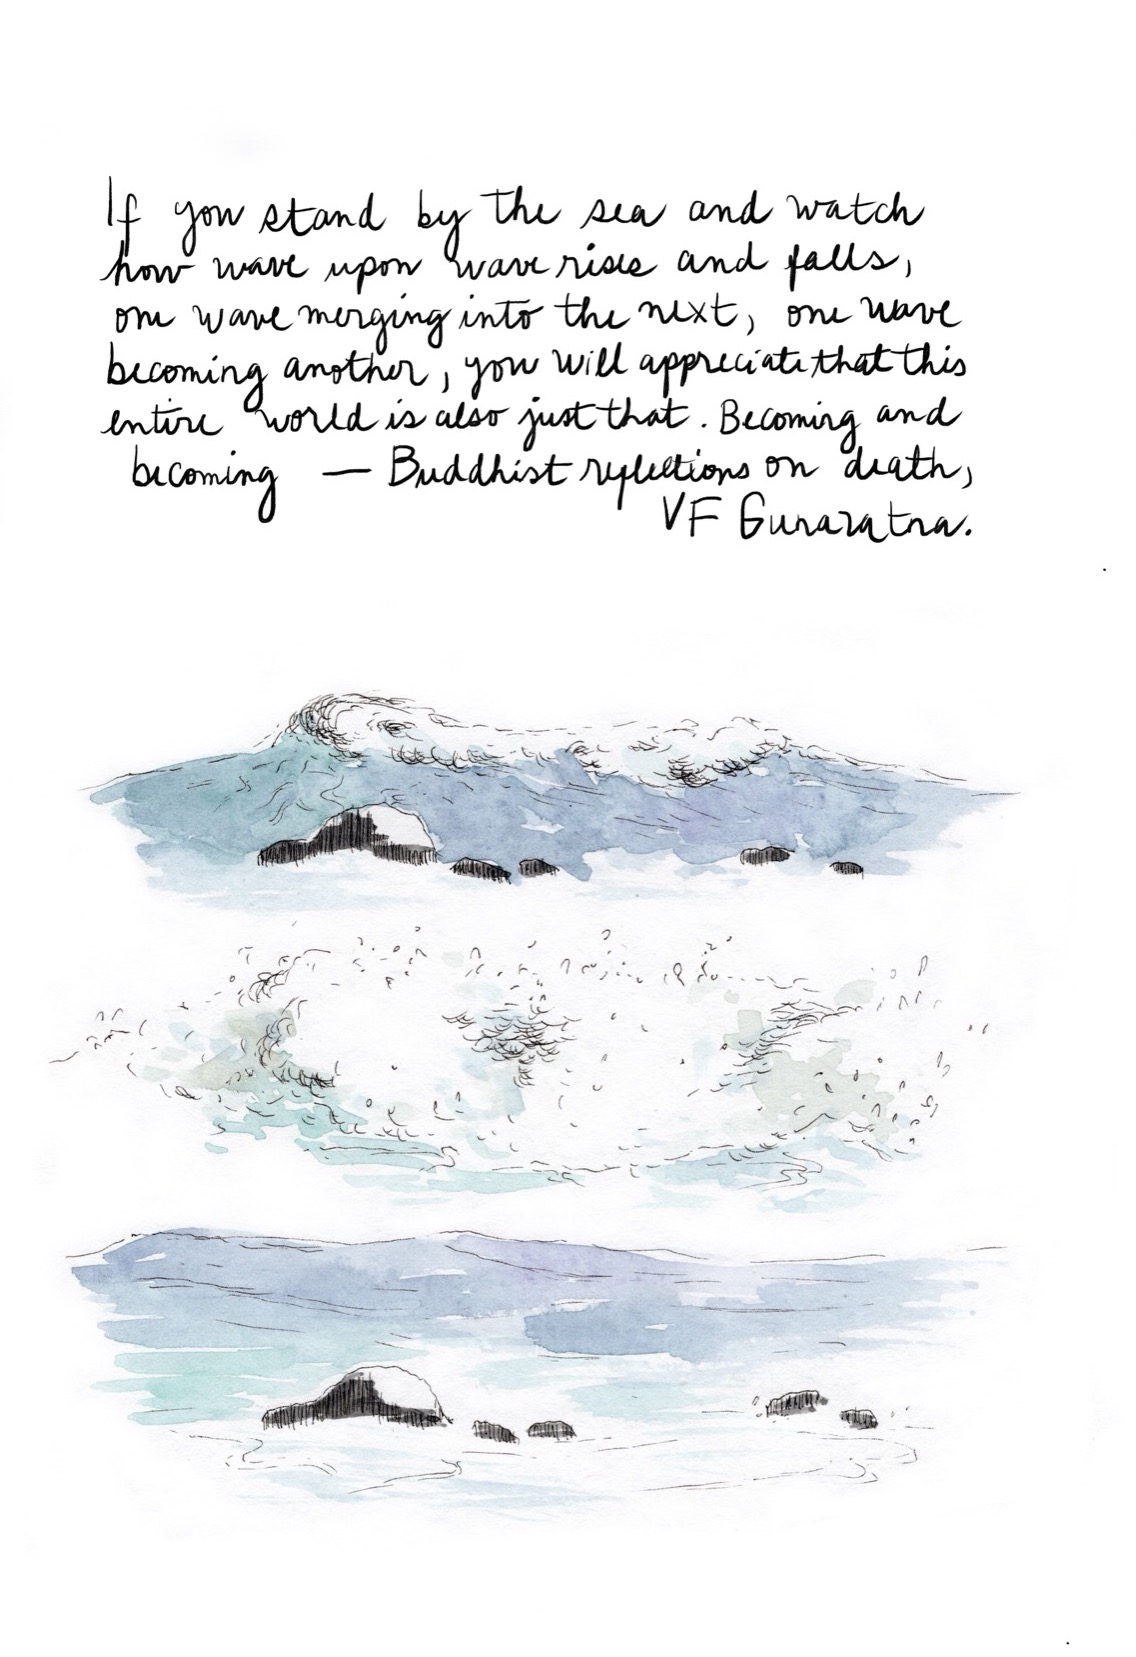 If you stand by the sea and watch
how wave upon wave rises and falls,
one wave merging into the next, one wave
becoming another, you will appreciate that this
entire world is also just that. Becoming and
becoming — Buddhist reflections on death,
VF Gunaratna.